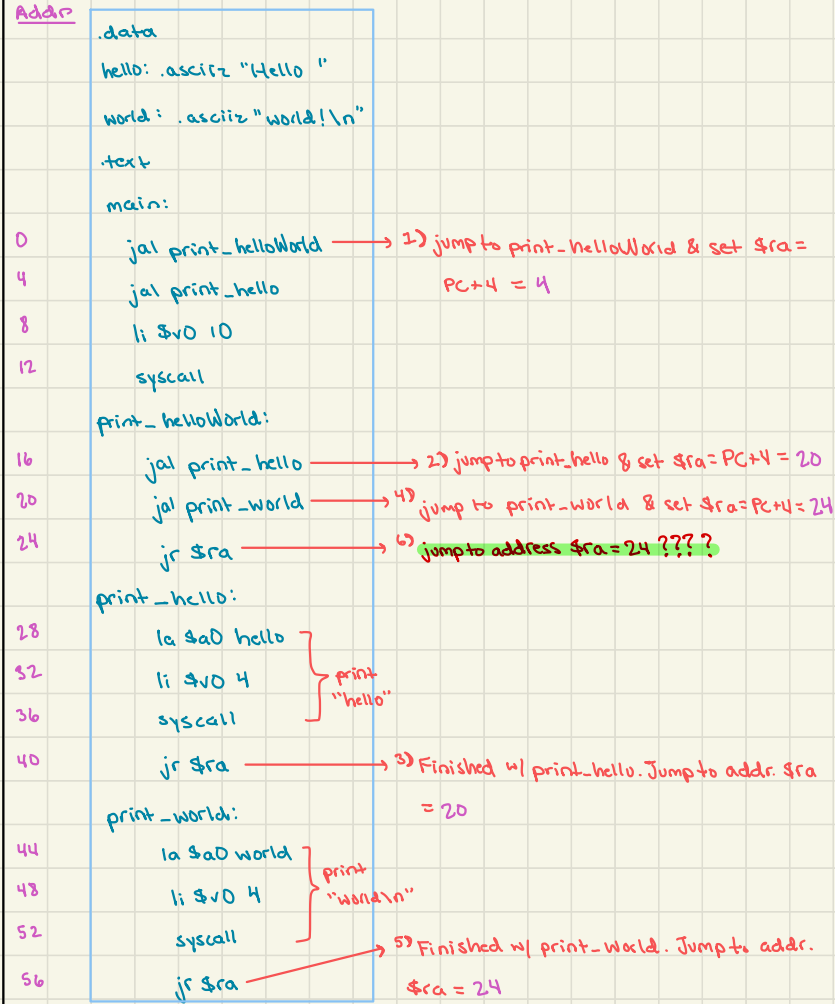 Addr
.data
hello: .asciiz "Hello "
world: .asciiz "world!\n"
.text
main:
0 jal print_helloWorld → 1) jump to print_helloWorld & set $ra =
PC+4 = 4
4 jal print_hello
8 li $v0 10
12 syscall
print_helloWorld:
16 jal print_hello → 2) jump to print_hello & set $ra = PC+4 = 20
20 jal print_world → 4) jump to print_world & set $ra = PC+4 = 24
24 jr $ra → 6) jump to address $ra = 24 ????
print_hello:
28 la $a0 hello
32 li $v0 4
print
"hello"
36 syscall
40 jr $ra → 3) Finished w/ print_hello. Jump to addr. $ra
= 20
print_world:
44 la $a0 world
print
48 li $v0 4
"world\n"
52 syscall
5) Finished w/ print_world. Jump to addr.
56 jr $ra →
$ra = 24